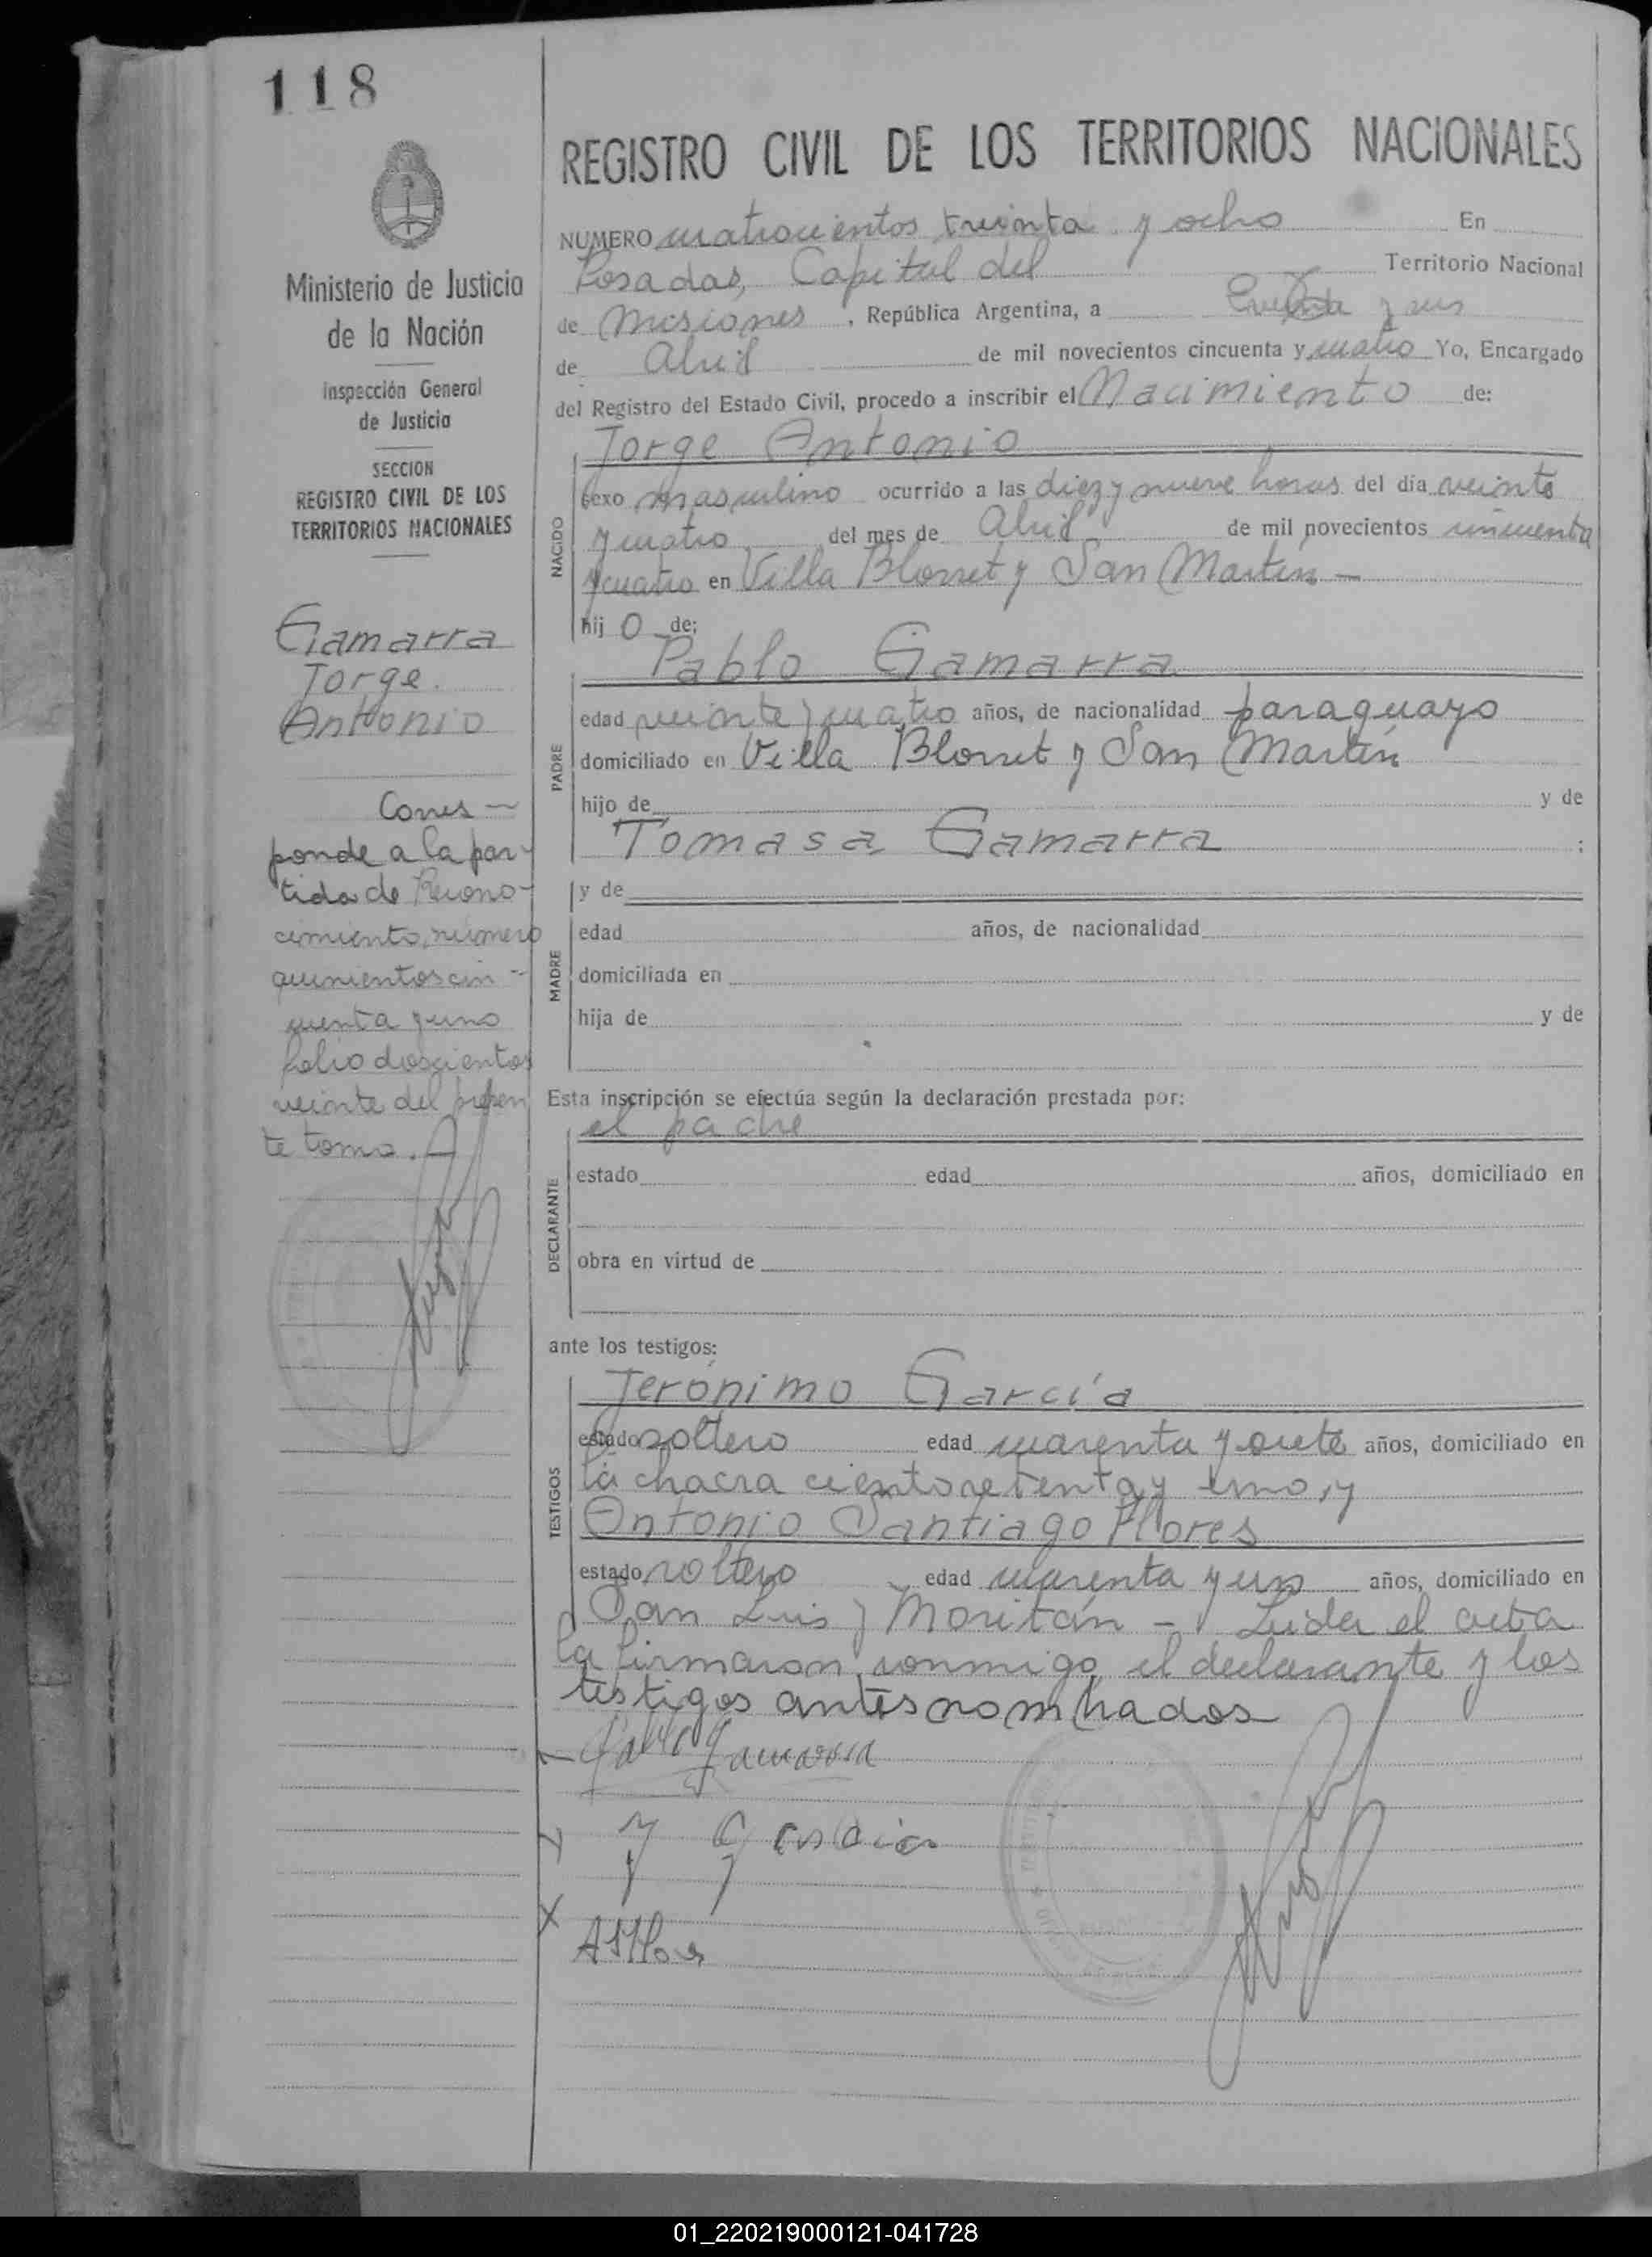 118
REGISTRO CIVIL DE LOS TERRITORIOS NACIONALES
NUMERO cuatrocientos treinta y ocho En
Posadas, Capital del Territorio Nacional
de Misiones, República Argentina, a veinte y seis
de Abril de mil novecientos cincuenta y cuatro Yo, Encargado
del Registro del Estado Civil, procedo a inscribir el Nacimiento de:
Jorge Antonio
NACIDO
sexo masculino ocurrido a las diez y nueve horas del día veinte
y cuatro del mes de Abril de mil novecientos cincuenta
y cuatro en Villa Blosset y San Martín -
hijo de:
Pablo Gamarra
PADRE
edad veinte y cuatro años, de nacionalidad paraguayo
domiciliado en Villa Blosset y San Martín
hijo de y de
Tomasa Gamarra ;
y de
MADRE
edad años, de nacionalidad
domiciliada en
hija de y de
Esta inscripción se efectúa según la declaración prestada por:
el padre
DECLARANTE
estado edad años, domiciliado en
obra en virtud de
ante los testigos:
Jerónimo García
TESTIGOS
estado soltero edad cuarenta y siete años, domiciliado en
la chacra ciento setenta y uno, y
Antonio Santiago Flores
estado soltero edad cuarenta y un años, domiciliado en
San Luis y Moritán - Leida el acta
la firmaron conmigo el declarante y los
testigos antes nombrados
Pablo Gamarra
J Garcia
ASFlores
Ministerio de Justicia
de la Nación
Inspección General
de Justicia
SECCION
REGISTRO CIVIL DE LOS
TERRITORIOS NACIONALES
Gamarra
Jorge
Antonio
Corres-
ponde a la par-
tida de Recono-
cimiento, número
quinientos cin-
cuenta y uno
folio doscientos
veinte del presen
te tomo.-
01_220219000121-041728